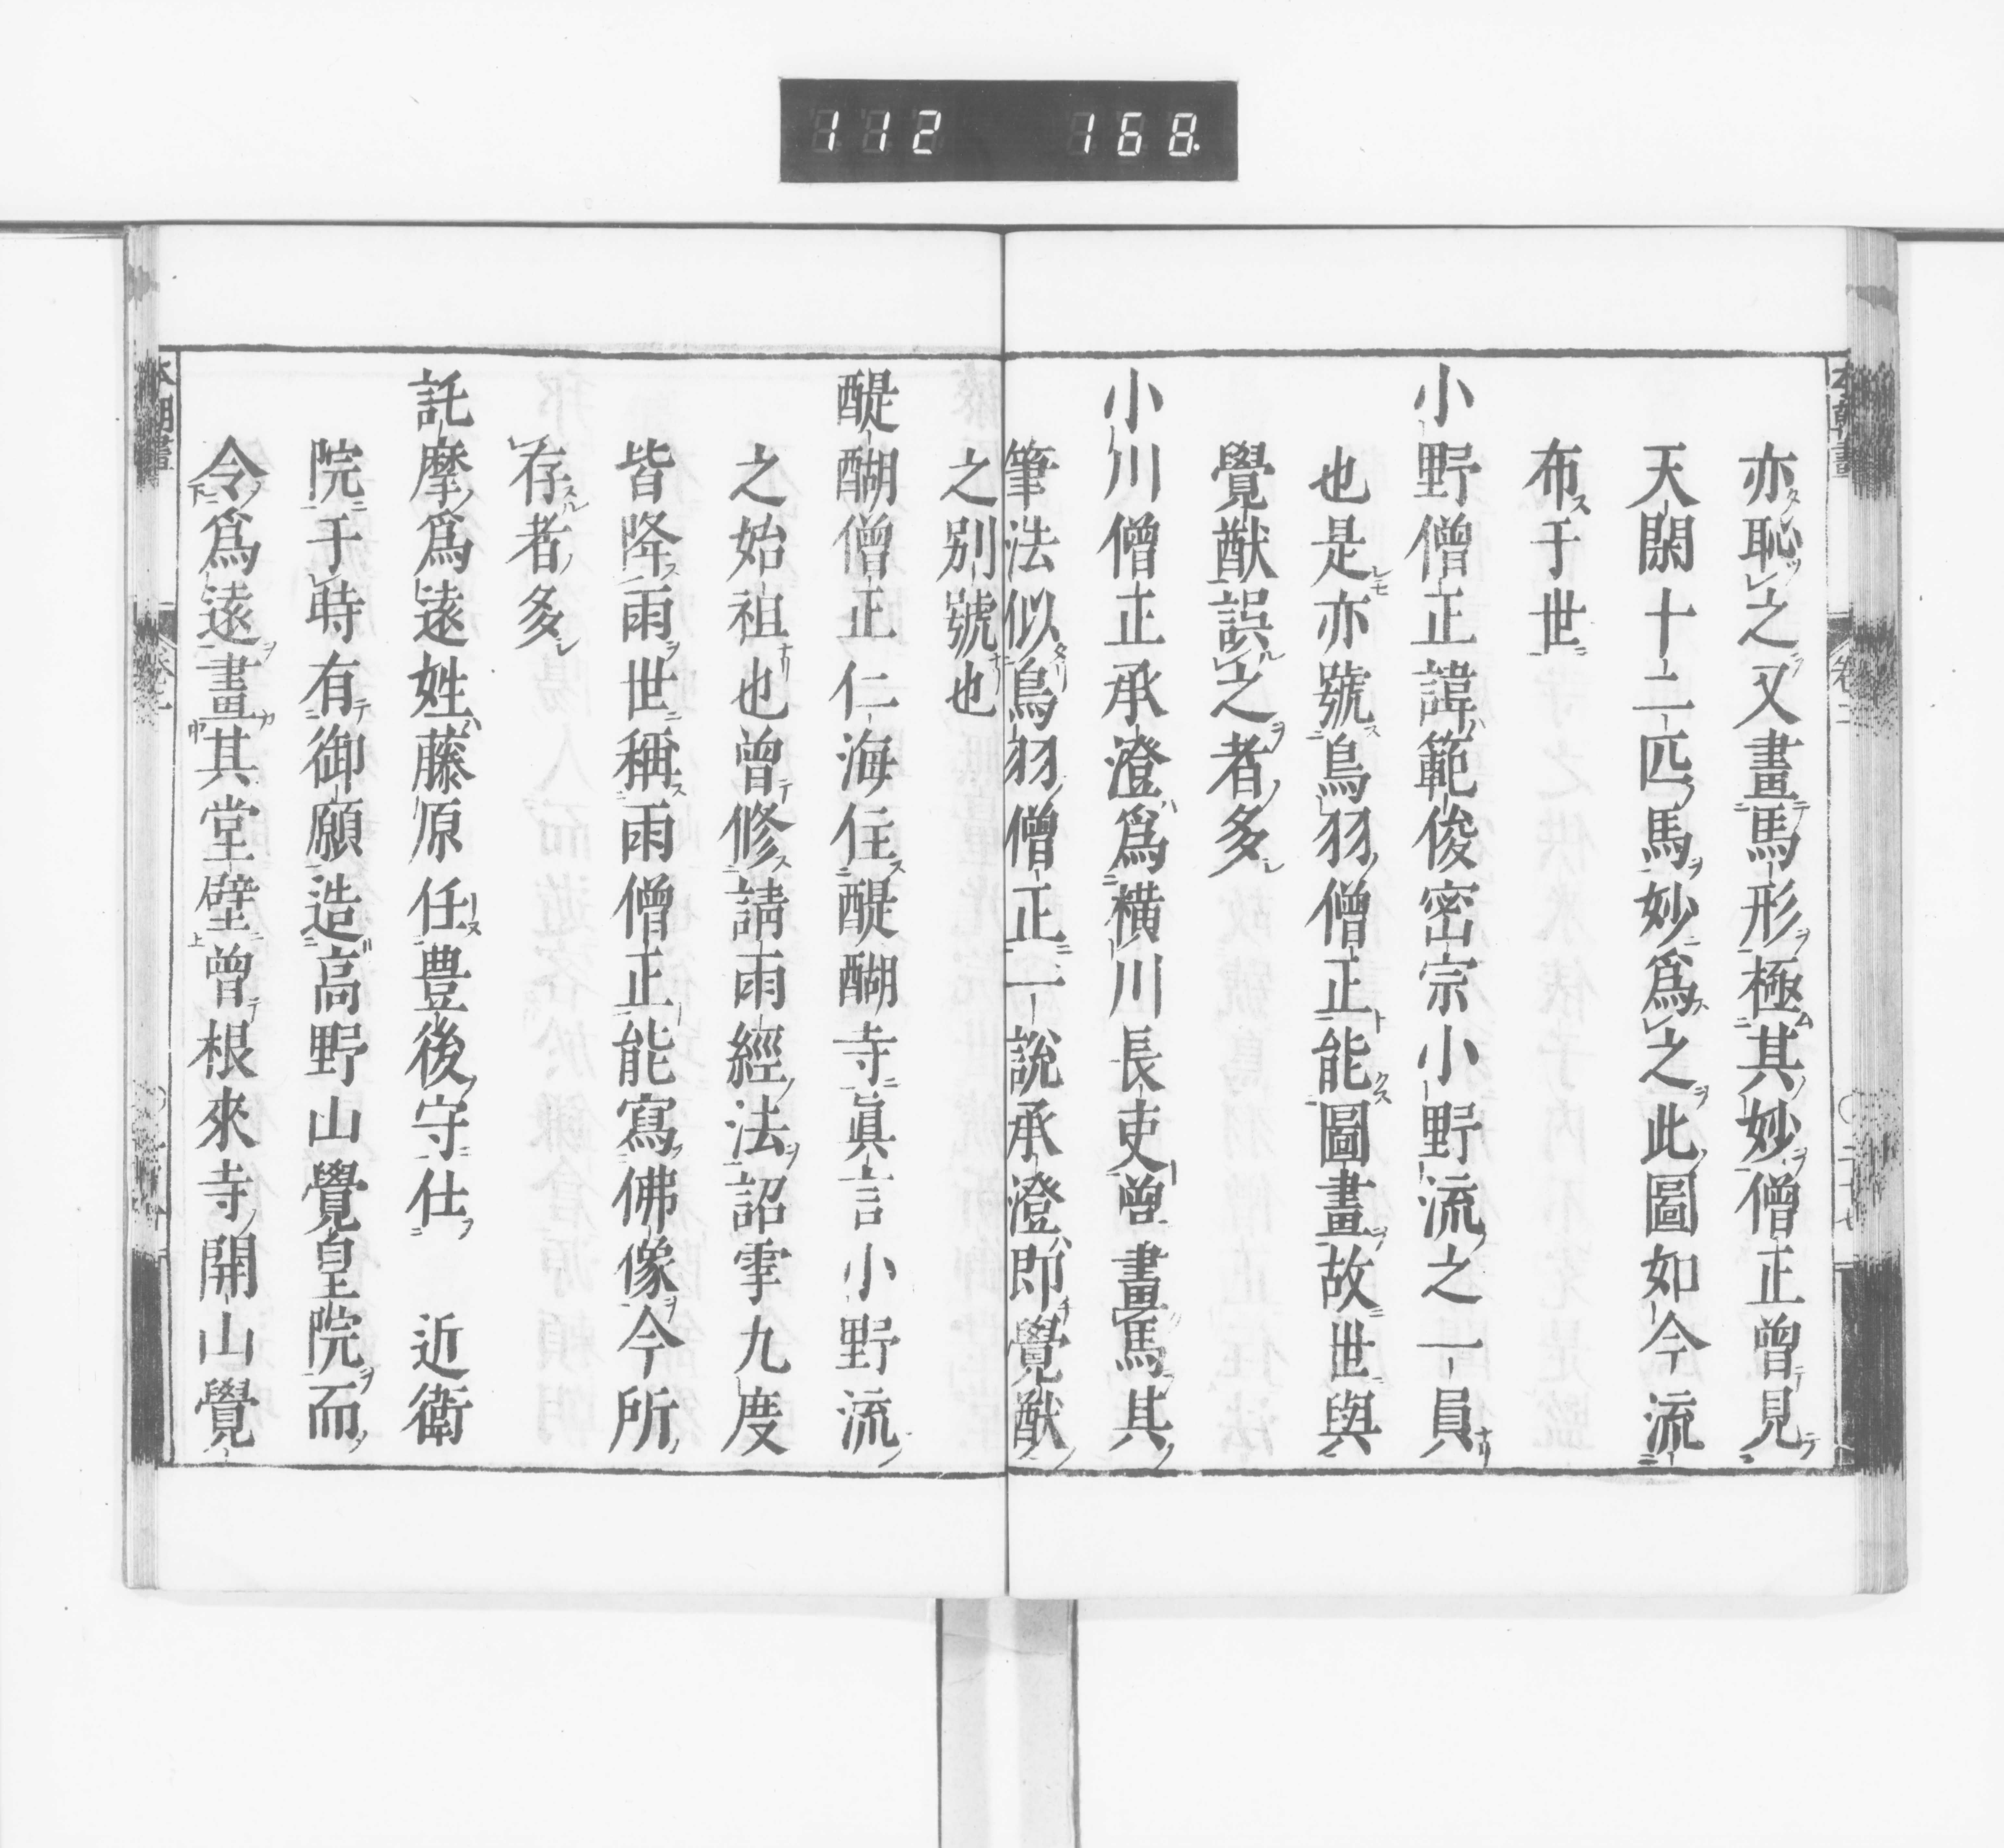 112 168.
亦恥之又畫馬形極其妙僧正曾見
天閑十二匹馬妙爲之此圖如今流
布于世
小野僧正諱範俊密宗小野流之一員
也是亦號鳥羽僧正能圖畫故世與
覺猷誤之者多
小川僧正承澄爲横川長吏曾畫馬其
筆法似鳥羽僧正一說承澄即覺猷
之別號也
醍醐僧正仁海住醍醐寺眞言小野流
之始祖也曾修請雨經法詔雩九度
皆降雨世稱雨僧正能寫佛像今所
存者多
託摩爲遠姓藤原任豊後守仕 近衛
院于時有御願造高野山覺皇院而
令爲遠畫其堂壁曾根來寺開山覺